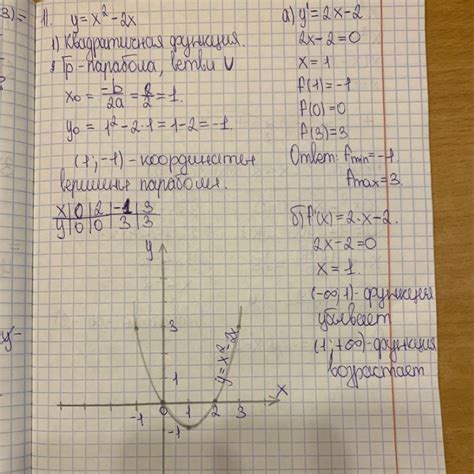 3)=
11. y=x²-2x
1) Квадратичная функция.
Гр-парабола, ветви ∪
x₀ = -b/2a = 2/2 = 1.
y₀ = 1²-2·1=1-2=-1.
(1;-1)-координаты
вершины параболы.
x|0|2|-1|3
y|0|0|3|3
y
3
1
y=x²-2x
x
-1 0 1 2 3
-1
y'-
а) y'=2x-2
2x-2=0
x=1
f(1)=-1
f(0)=0
f(3)=3
Ответ: fmin=-1
fmax=3.
б) f'(x)=2·x-2.
2x-2=0
x=1.
(-∞;1)-функция
убывает
(1;+∞)-функция
возрастает